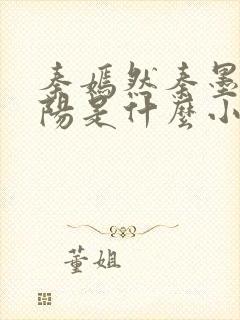 秦嫣然秦墨
陽是什麼小
董姐